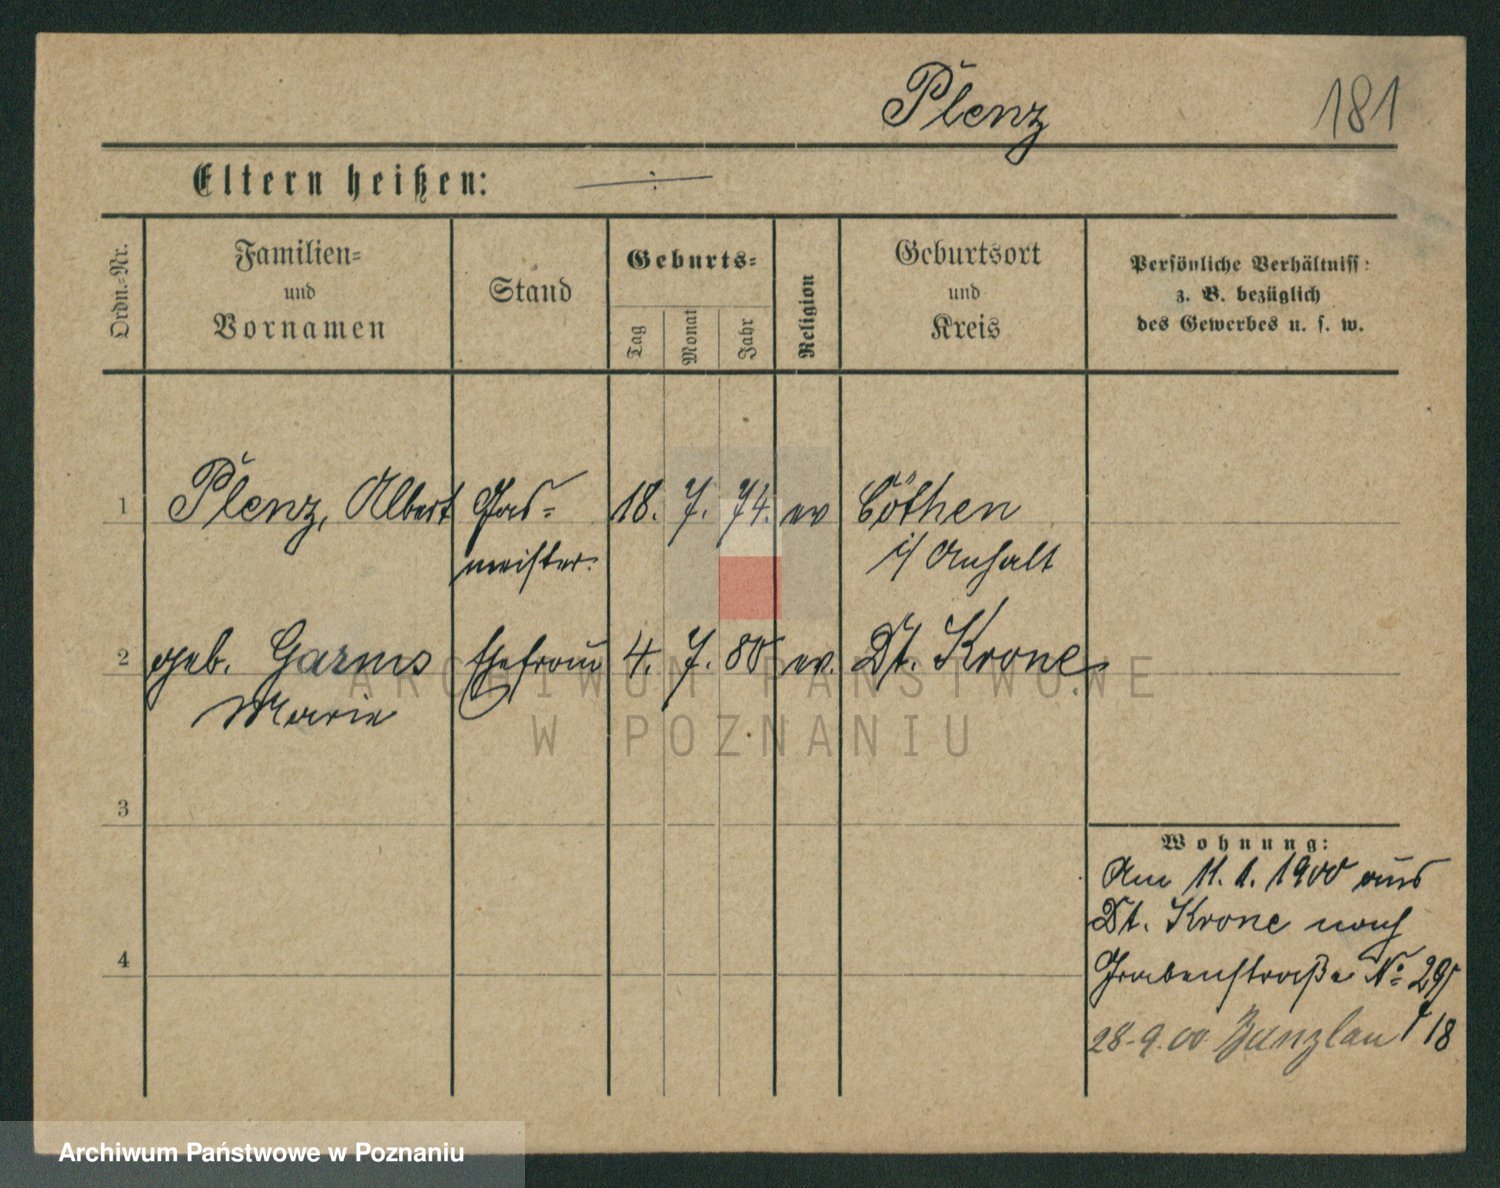 Plenz
181
Eltern heißen: ÷
Ordn.-Nr.
Familien-
und
Vornamen
Stand
Geburts-
Tag
Monat
Jahr
Religion
Geburtsort
und
Kreis
Persönliche Verhältniss:
z. B. bezüglich
des Gewerbes u. s. w.
1 Plenz, Albert Gas- 18. 7. 74. ev Cöthen
meister. i/ Anhalt
2 geb. Garms Ehefrau 4. 7. 80 ev. Dt. Krone
Marie
3
4
Wohnung:
Am 11. 1. 1900 aus
Dt. Krone nach
Grabenstraße No 29
18
28-9.00 Bunzlau
ARCHIWUM PAŃSTWOWE
W POZNANIU
Archiwum Państwowe w Poznaniu